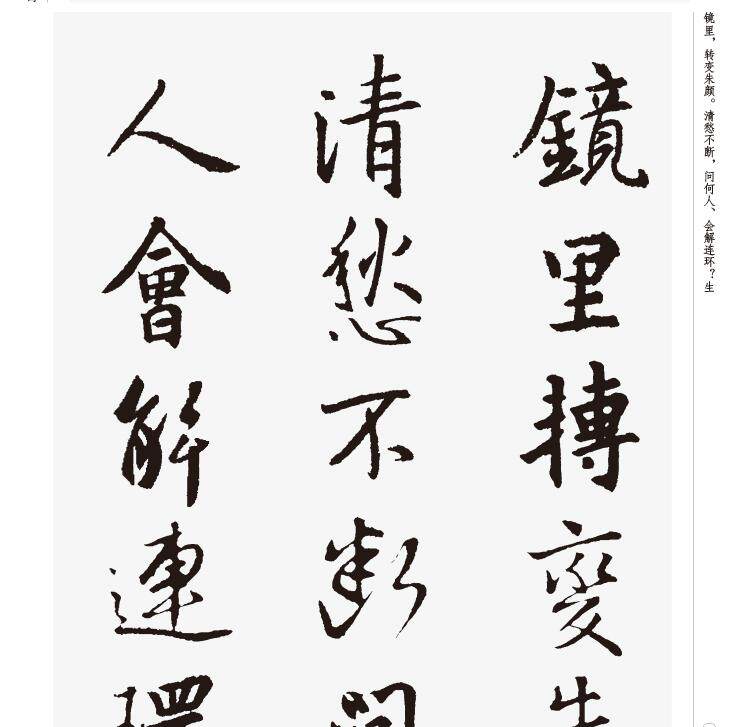 镜里，转变朱颜。清愁不断，问何人、会解连环？生
鏡里轉變朱
清愁不斷問
人會解連環